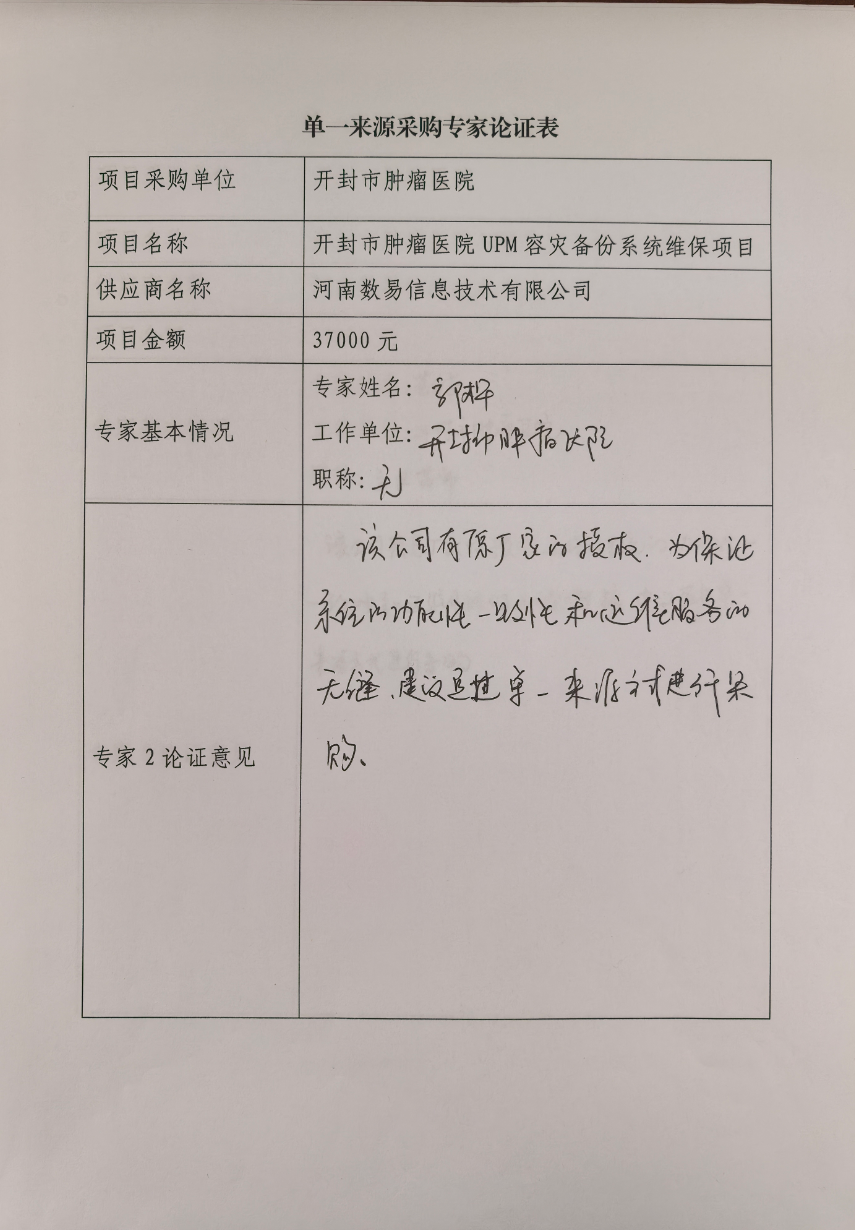 单一来源采购专家论证表
项目采购单位 开封市肿瘤医院
项目名称 开封市肿瘤医院 UPM 容灾备份系统维保项目
供应商名称 河南数易信息技术有限公司
项目金额 37000 元
专家基本情况
专家姓名: 郭
工作单位: 开封市肿瘤医院
职称: 无
专家 2 论证意见
该公司有原厂家的授权.为保证
系统的功能性一致性和运维服务的
无缝、建议通过单一来源方式进行采
购、